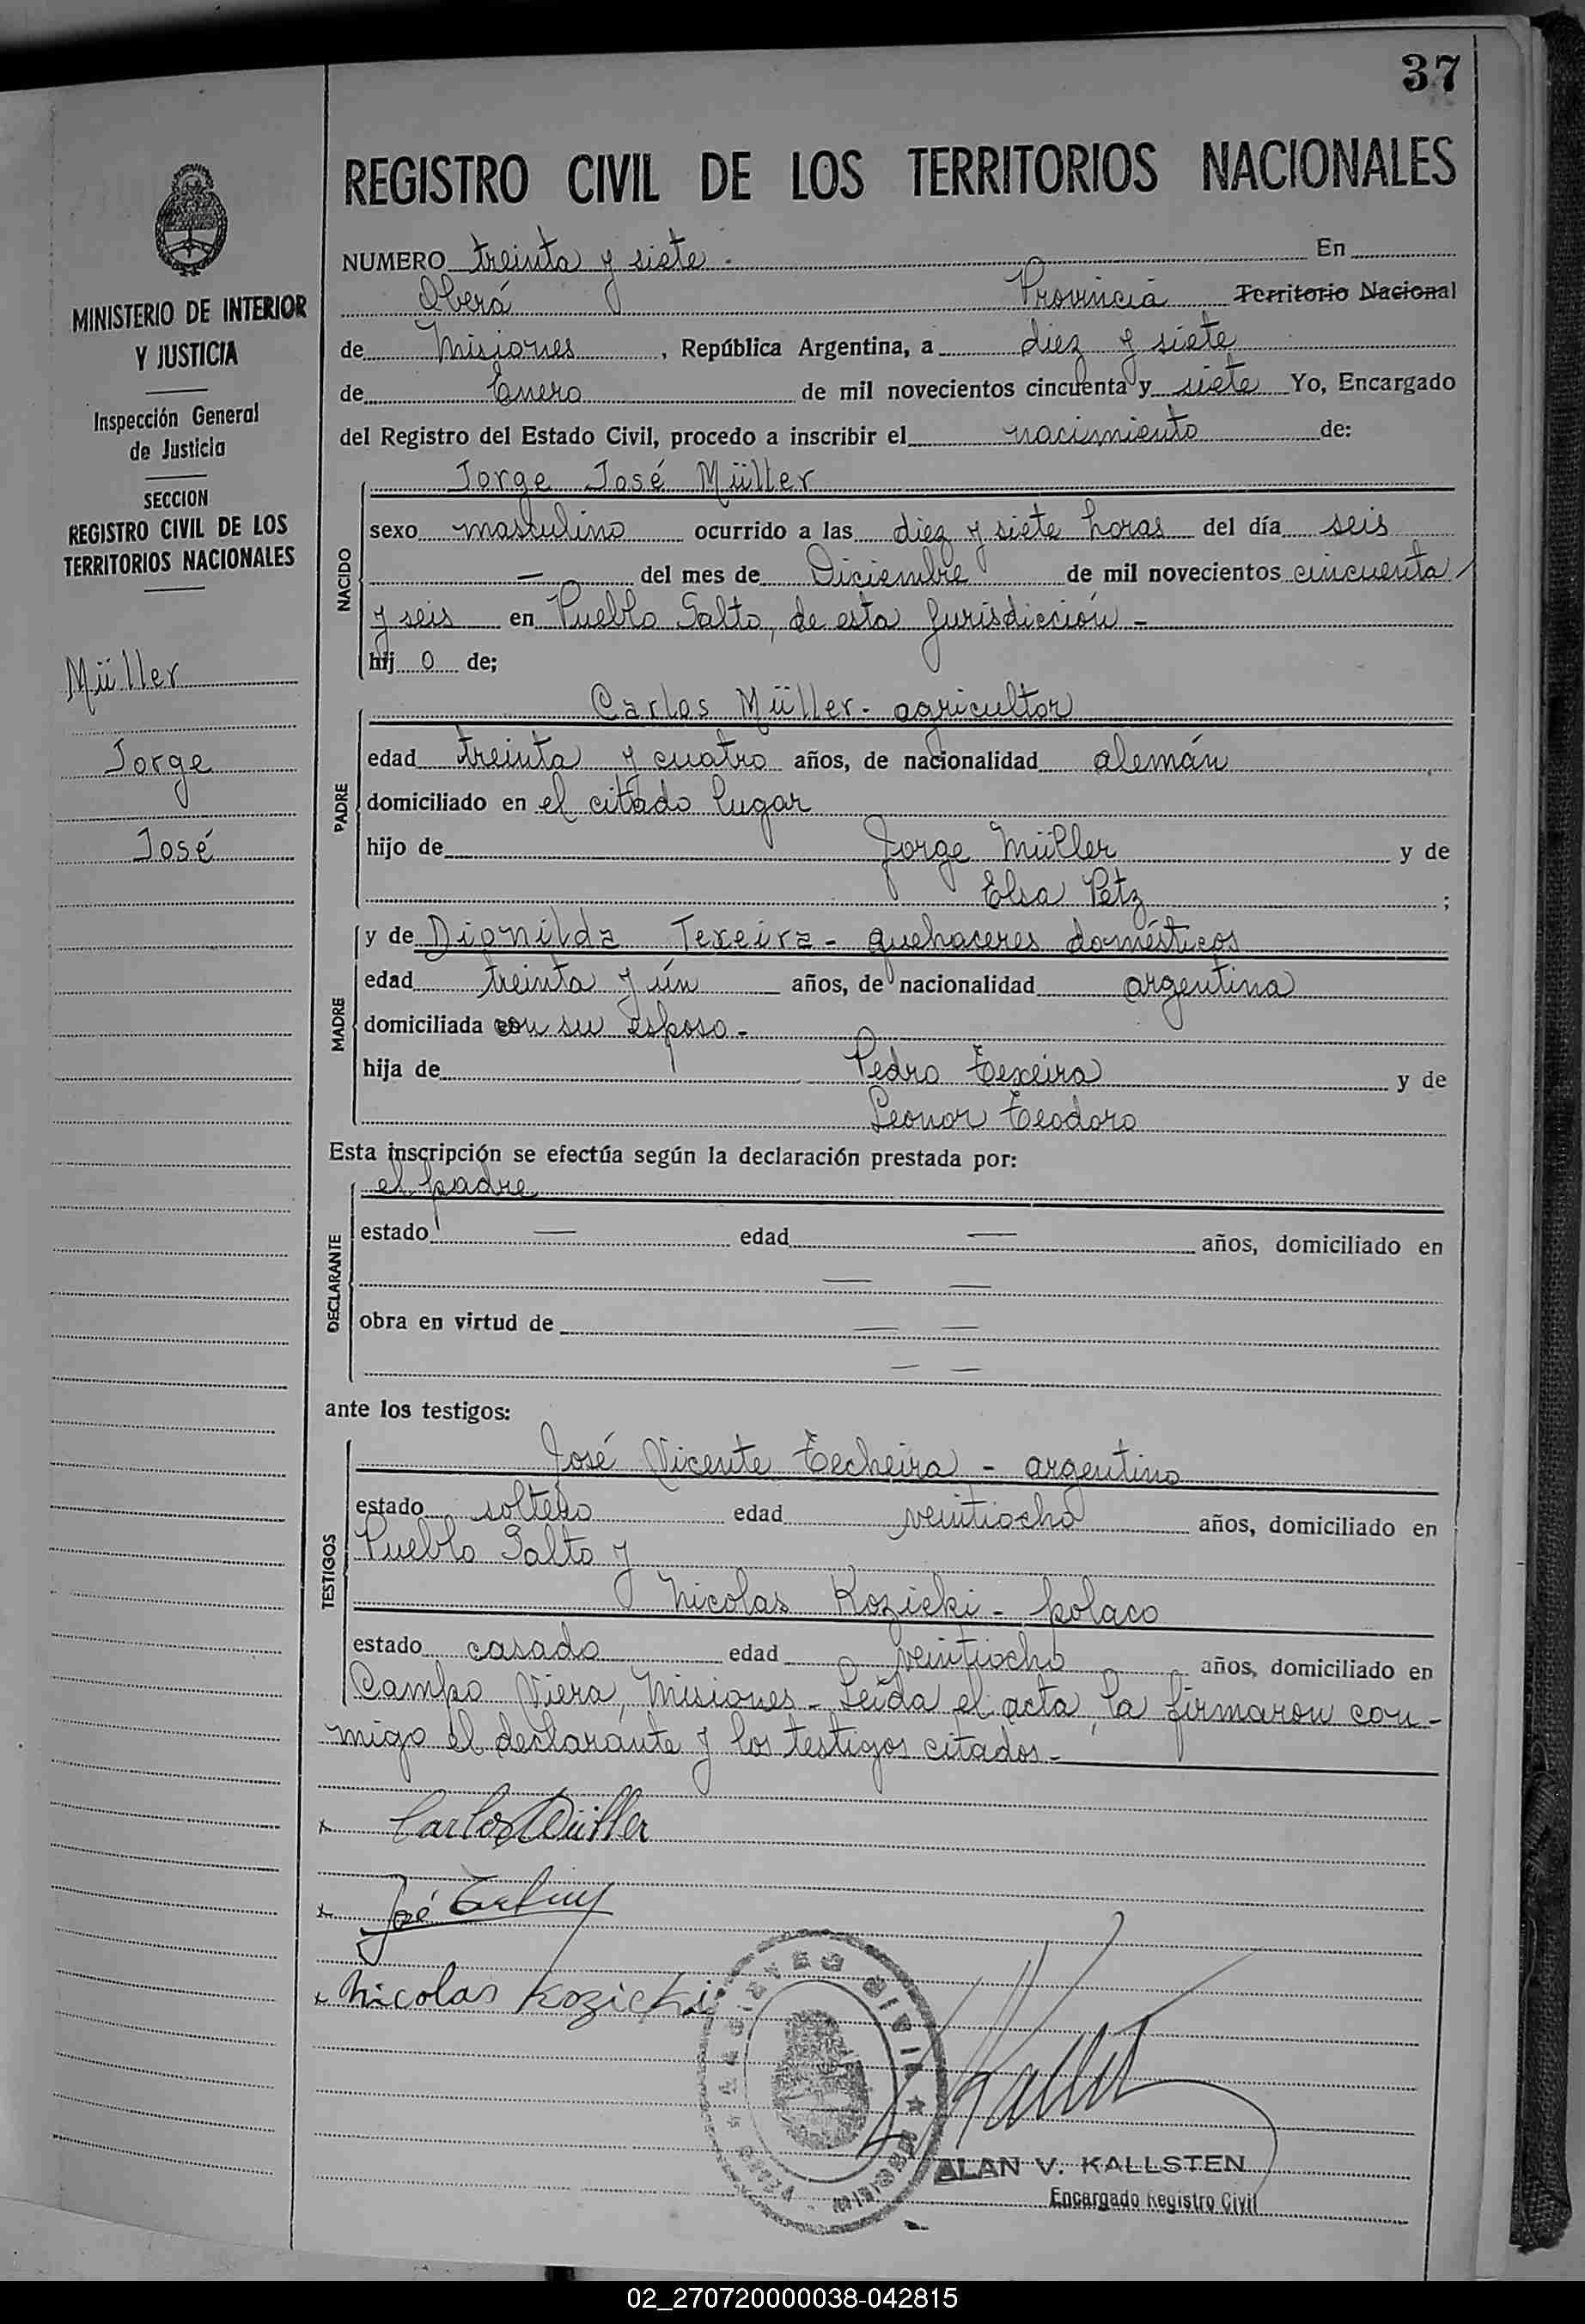 37
REGISTRO CIVIL DE LOS TERRITORIOS NACIONALES
MINISTERIO DE INTERIOR
Y JUSTICIA
Inspección General
de Justicia
SECCION
REGISTRO CIVIL DE LOS
TERRITORIOS NACIONALES
Müller
Jorge
José
NUMERO treinta y siete. En
Oberá Provincia Territorio Nacional
de Misiones, República Argentina, a diez y siete
de Enero de mil novecientos cincuenta y siete Yo, Encargado
del Registro del Estado Civil, procedo a inscribir el nacimiento de:
NACIDO
Jorge José Müller
sexo masculino ocurrido a las diez y siete horas del día seis
— del mes de Diciembre de mil novecientos cincuenta
y seis en Pueblo Salto, de esta Jurisdicción -
hij o de;
PADRE
Carlos Müller - agricultor
edad treinta y cuatro años, de nacionalidad alemán
domiciliado en el citado lugar
hijo de Jorge Müller y de
Elsa Petz ;
MADRE
y de Dionilda Texeira - quehaceres domésticos
edad treinta y ún años, de nacionalidad argentina
domiciliada con su esposo -
hija de Pedro Texeira y de
Leonor Teodoro
Esta inscripción se efectúa según la declaración prestada por:
DECLARANTE
el padre
estado — edad — años, domiciliado en
— —
obra en virtud de — —
— —
ante los testigos:
TESTIGOS
José Vicente Techeira - argentino
estado soltero edad veintiocho años, domiciliado en
Pueblo Salto y
Nicolas Kozicki - polaco
estado casado edad veintiocho años, domiciliado en
Campo Viera, Misiones - Leída el acta, la firmaron con-
migo el declarante y los testigos citados -
x Carlos Müller
x José
x Nicolas Kozicki
REGISTRO CIVIL
Kallsten
ALAN V. KALLSTEN
Encargado Registro Civil
02_270720000038-042815